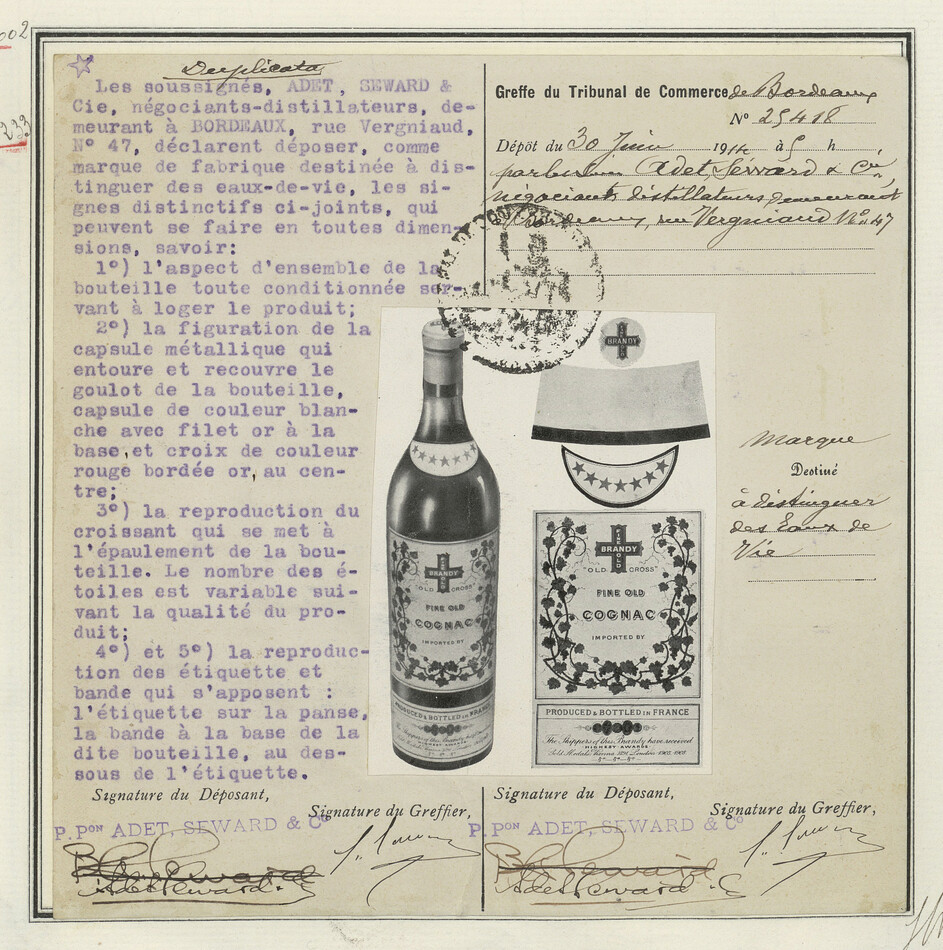 002
233
Duplicata
Les soussignés, ADET, SEWARD &
Cie, négociants-distillateurs, de-
meurant à BORDEAUX, rue Vergniaud,
N° 47, déclarent déposer, comme
marque de fabrique destinée à dis-
tinguer des eaux-de-vie, les si-
gnes distinctifs ci-joints, qui
peuvent se faire en toutes dimen-
sions, savoir:
1°) l'aspect d'ensemble de la
bouteille toute conditionnée ser-
vant à loger le produit;
2°) la figuration de la
capsule métallique qui
entoure et recouvre le
goulot de la bouteille,
capsule de couleur blan-
che avec filet or à la
base, et croix de couleur
rouge bordée or, au cen-
tre;
3°) la reproduction du
croissant qui se met à
l'épaulement de la bou-
teille. Le nombre des é-
toiles est variable sui-
vant la qualité du pro-
duit;
4°) et 5°) la reproduc-
tion des étiquette et
bande qui s'apposent :
l'étiquette sur la panse,
la bande à la base de la
dite bouteille, au des-
sous de l'étiquette.
Signature du Déposant,
Signature du Greffier,
P. Pon ADET, SEWARD & Co
Adet Seward & C
Greffe du Tribunal de Commerce de Bordeaux
N° 25418
Dépôt du 30 Juin 1914 à 5 h ,
par Adet, Seward & Cie,
négociants distillateurs, demeurant
à Bordeaux, rue Vergniaud N° 47
BRANDY
FINE OLD
BRANDY
"OLD CROSS"
FINE OLD
COGNAC
IMPORTED BY
PRODUCED & BOTTLED IN FRANCE
FINE OLD
BRANDY
"OLD CROSS"
FINE OLD
COGNAC
IMPORTED BY
PRODUCED & BOTTLED IN FRANCE
The Shippers of this Brandy have received
HIGHEST AWARDS
Marque
Destiné
à distinguer
des Eaux de
Vie
Signature du Déposant,
Signature du Greffier,
P. Pon ADET, SEWARD & Co
Adet Seward & C